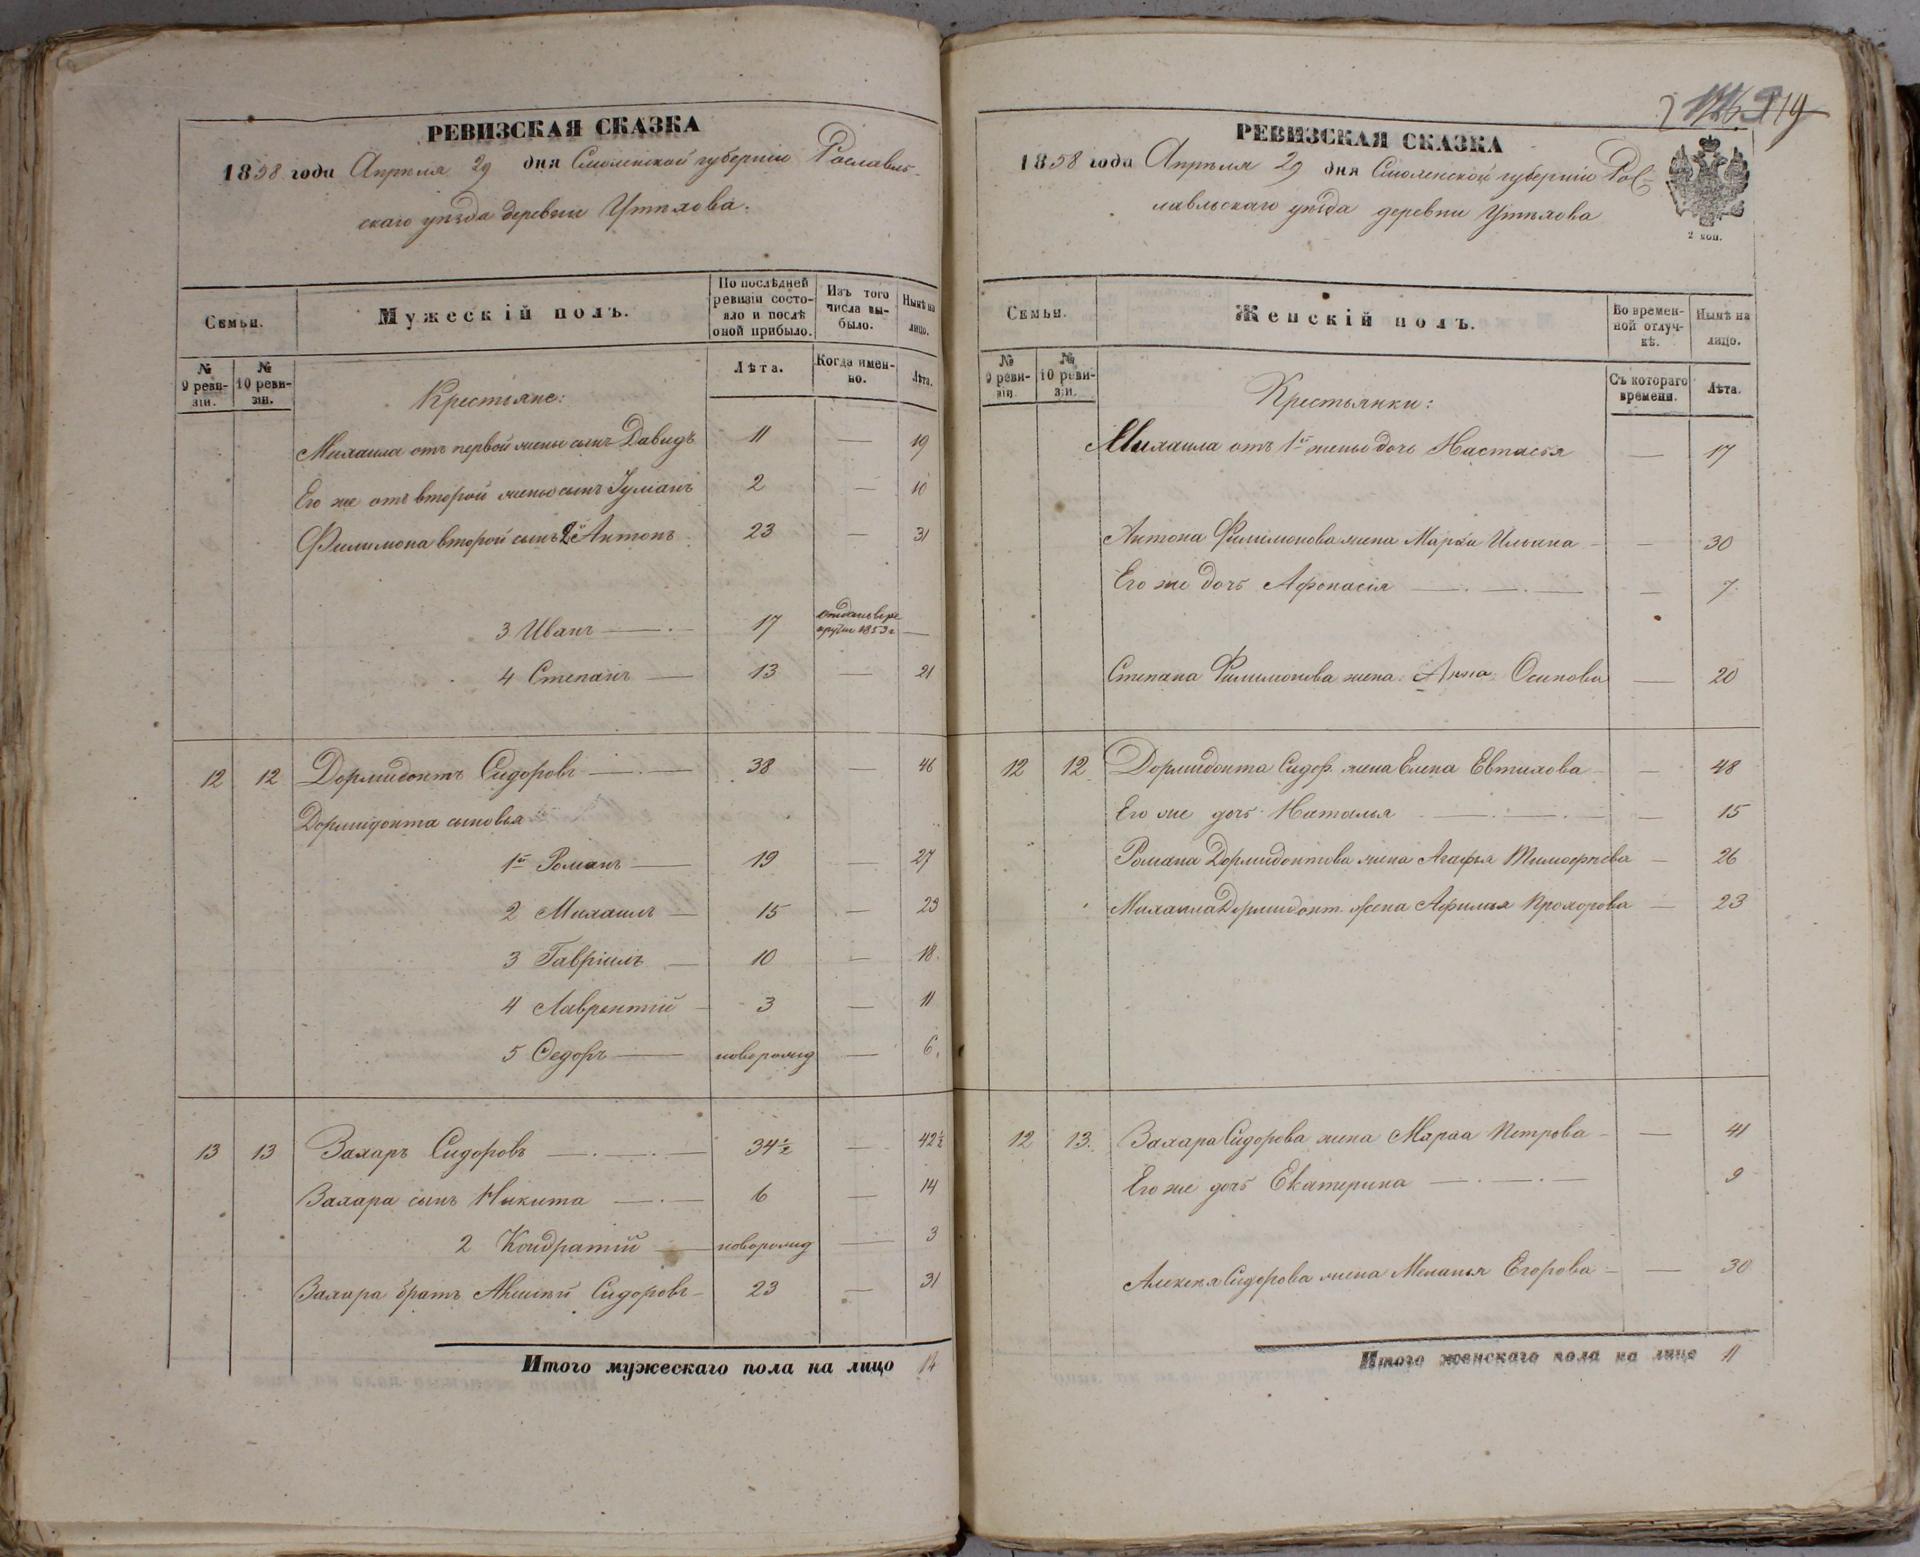 РЕВИЗСКАЯ СКАЗКА
1858 года Апрѣля 29 дня Смоленской губерніи Рославль-
скаго уѣзда деревни Утѣхова.
Семьи.
Мужескій полъ.
По послѣдней ревизіи состояло и послѣ оной прибыло.
Изъ того числа выбыло.
Нынѣ на лицо.
№ 9 ревизіи.
№ 10 ревизіи.
Лѣта.
Когда именно.
Лѣта.
Крестьяне:
Михаила отъ первой жены сынъ Давидъ 11 — 19
Его же отъ второй жены сынъ Іуліанъ 2 — 10
Филимона второй сынъ 2й Антонъ 23 — 31
3 Иванъ — 17 отданъ въ рекруты 1853 г —
4 Степанъ — 13 — 21
12 12 Дормидонтъ Сидоровъ — 38 — 46
Дормидонта сыновья
1й Романъ — 19 — 27
2 Михаилъ — 15 — 23
3 Гавріилъ — 10 — 18
4 Лаврентій - 3 — 11
5 Федоръ — новорожд — 6.
13 13 Захаръ Сидоровъ — 34½ — 42½
Захара сынъ Никита — 6 — 14
2 Кондратій — новорожд — 3
Захара братъ Алексѣй Сидоровъ - 23 — 31
Итого мужескаго пола на лицо 14
119
РЕВИЗСКАЯ СКАЗКА
1858 года Апрѣля 29 дня Смоленской губерніи Рос-
лавльскаго уѣзда деревни Утѣхова
2 коп.
Семьи.
Женскій полъ.
Во временной отлучкѣ.
Нынѣ на лицо.
№ 9 ревизіи.
№ 10 ревизіи.
Съ котораго времени.
Лѣта.
Крестьянки:
Михаила отъ 1й жены дочь Настасья — 17
Антона Филимонова жена Марѳа Ильина - — 30
Его же дочь Афонасія — 7
Степана Филимонова жена Анна Осипова — 20
12 12 Дормидонта Сидор. жена Елена Евтихова - — 48
Его же дочь Наталья — 15
Романа Дормидонтова жена Агафья Тимофѣева — 26
Михаила Дормидонт. жена Афимья Прохорова — 23
12 13. Захара Сидорова жена Марѳа Петрова - — 41
Его же дочь Екатерина — 9
Алексѣя Сидорова жена Меланья Егорова - — 30
Итого женскаго пола на лице 11